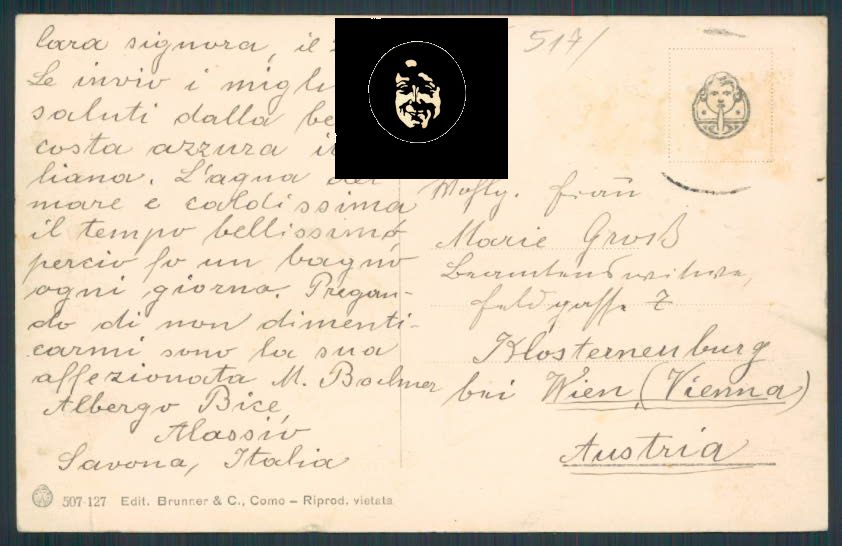 Cara signora, il
Le invio i migli
saluti dalla be
costa azzura i
liana. L'aqua del
mare e caldissima
il tempo bellissimo
percio fo un bagno
ogni giorno. Pregan-
do di non dimenti-
carmi sono la sua
affezionata M. Bodmer
Albergo Bice,
Alassio
Savona, Italia
507-127 Edit. Brunner & C., Como – Riprod. vietata
517/
Wohlg. Frau
Marie Groß
Beamtenswitwe,
Feldgasse 7
Klosterneuburg
bei Wien (Vienna)
Austria